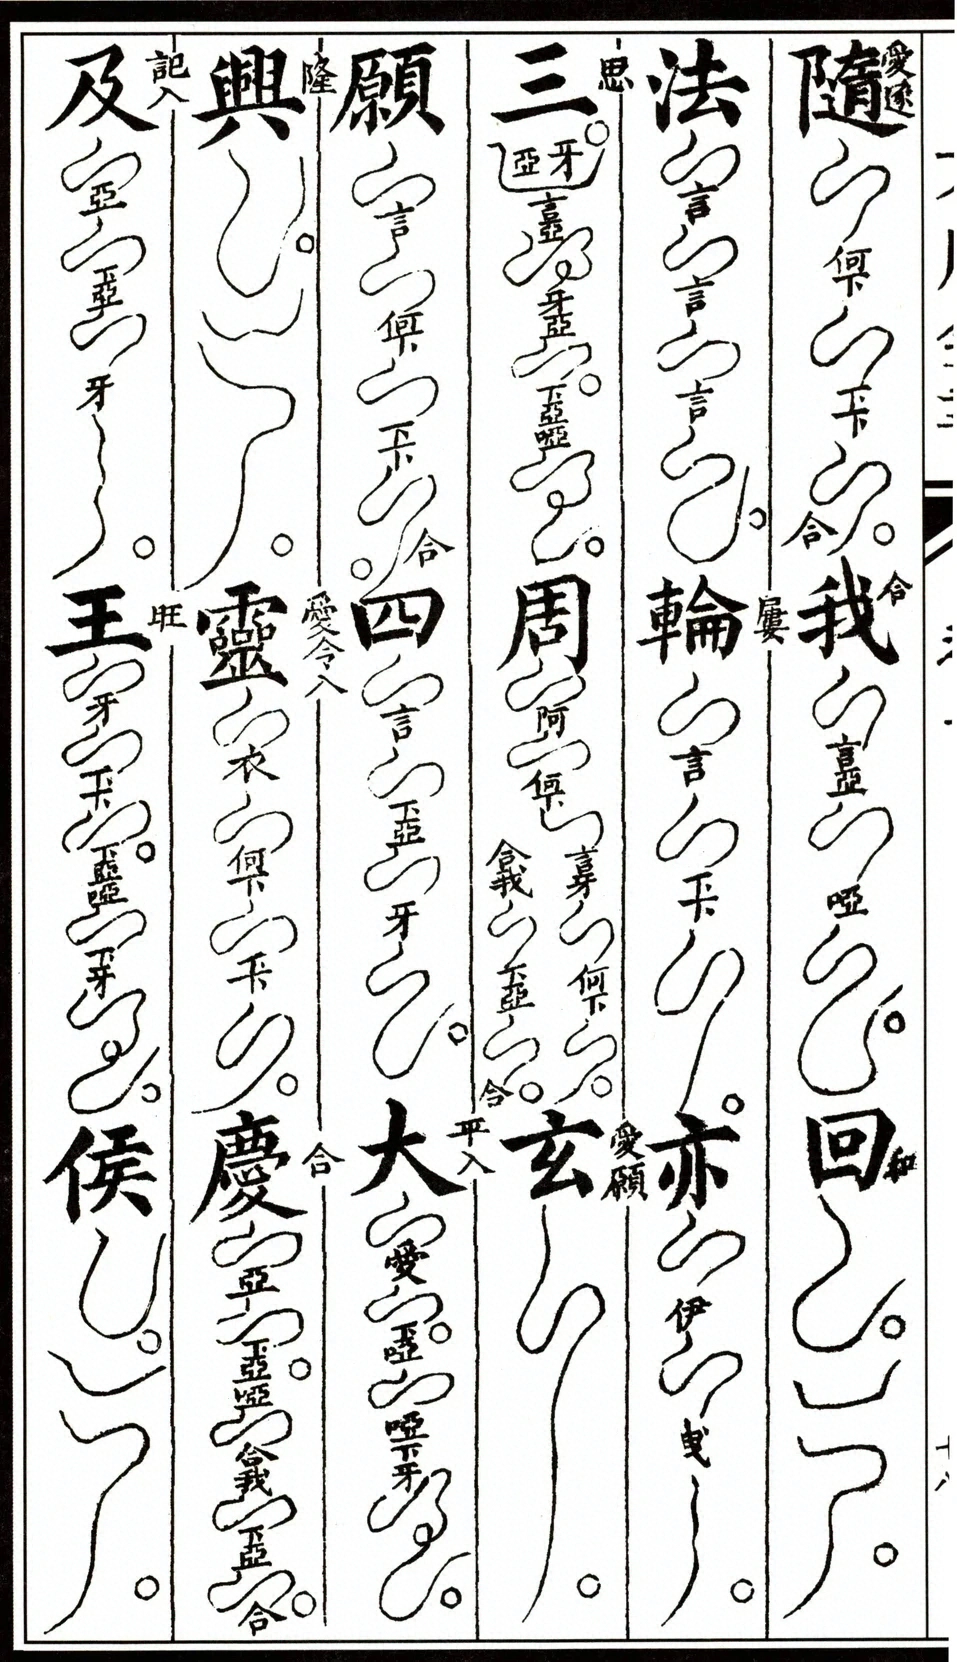 隨 愛 何下 下 合 我 合 言亞 啞 回 和
法 言 言 言 輪 屢 言 亦 伊 曳
三 思 牙 亞 言亞 牙亞 下亞啞 周 阿 何下 言牙 何下 合我 下亞 合 玄 愛願
願 言 何下 合 四 言 下亞 牙 大 平入 愛 下啞 啞下牙
興 隆 靈 愛令入 衣 何下 慶 合 亞 下亞啞 合我 下亞 合
及 記入 亞 下亞 牙 王 旺 牙 下亞啞 下牙 侯